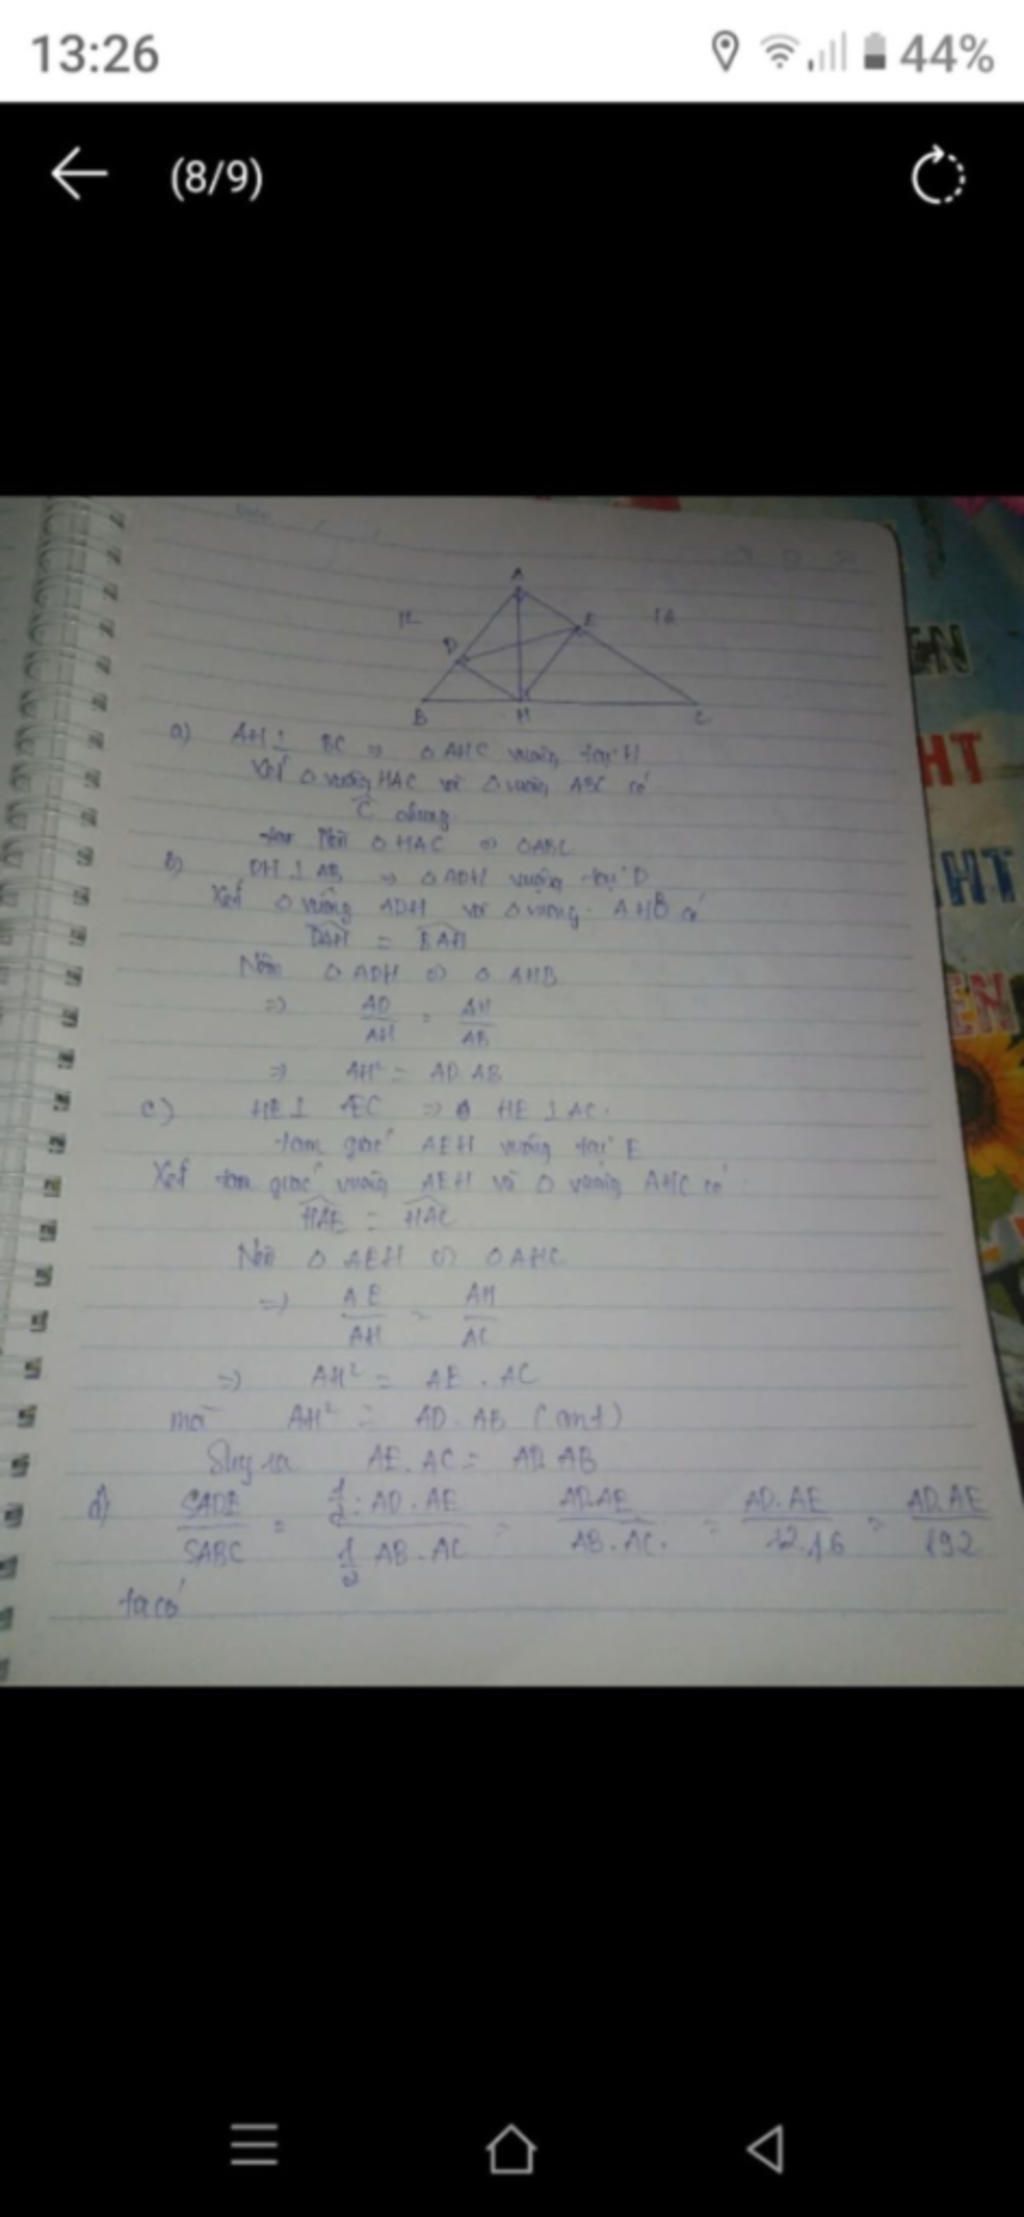 13:26
44%
(8/9)
A
12
E
16
D
B
H
C
a) AH ⊥ BC ⇒ △AHC vuông tại H
Xét △ vuông HAC và △ vuông ABC có
Ĉ chung
nên △HAC ∽ △ABC
b) DH ⊥ AB ⇒ △ADH vuông tại D
Xét △ vuông ADH và △ vuông AHB có
DAH = BAH
Nên △ADH ∽ △AHB
⇒ AD/AH = AH/AB
⇒ AH² = AD.AB
c) HE ⊥ AC
tam giác AEH vuông tại E
Xét tam giác vuông AEH và △ vuông AHC có:
HAE = HAC
Nên △AEH ∽ △AHC
⇒ AE/AH = AH/AC
⇒ AH² = AE.AC
mà AH² = AD.AB (cmt)
Suy ra AE.AC = AD.AB
d) SADE/SABC = 1/2.AD.AE / 1/2 AB.AC = AD.AE/AB.AC. = AD.AE/12.16 = AD.AE/192
ta có
EN
HT
HT
EN